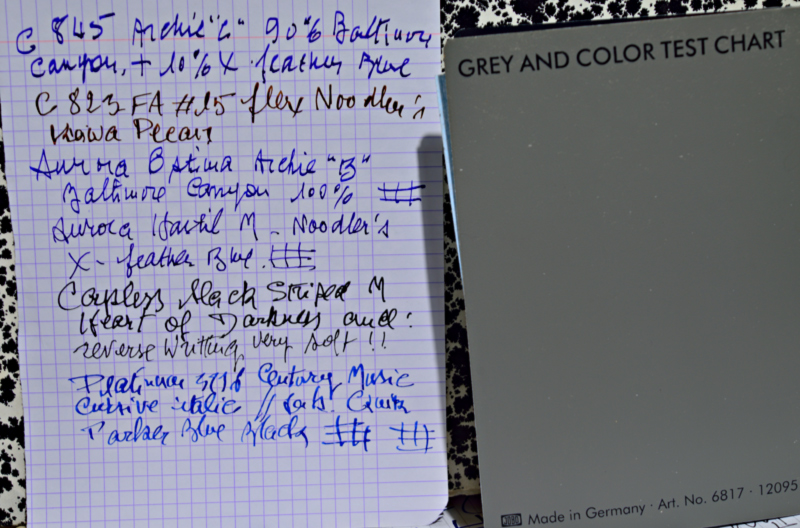 C 845 Archie "C" 90% Baltimore
Canyon, + 10% X-feather Blue
C 823 FA #15 flex Noodler's
Kiowa Pecan
Aurora Optima Archie "B"
Baltimore Canyon 100%
Aurora Hastil M - Noodler's
X-feather Blue.
Capless Black Striped M
Heart of Darkness and:
reverse writing very soft !!
Platinum 3776 Century Music
Cursive italic //
Parker Blue Black
GREY AND COLOR TEST CHART
Made in Germany · Art. No. 6817 · 12095